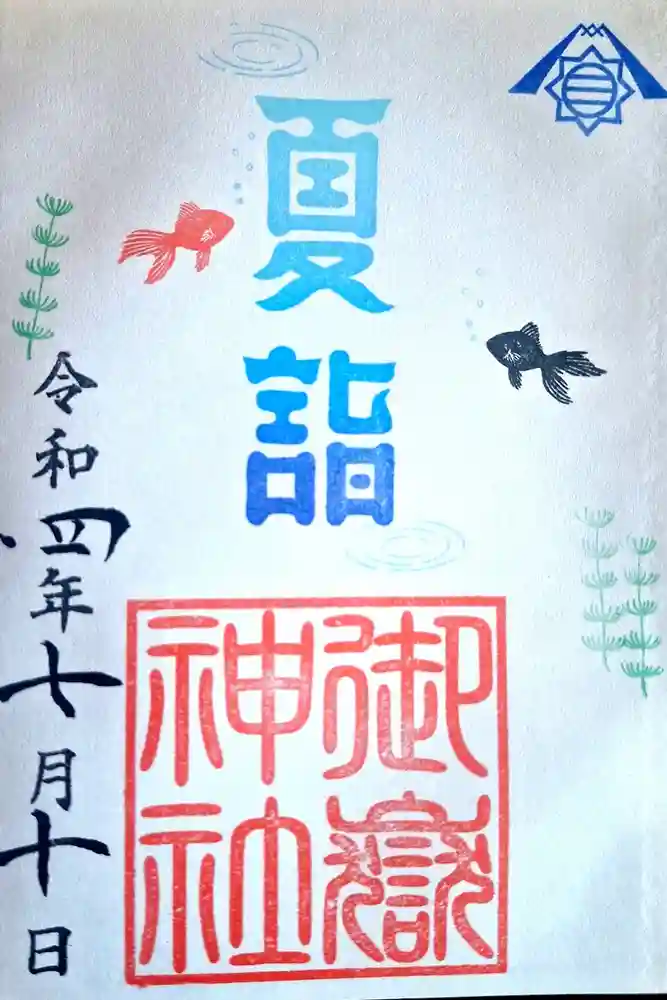 夏詣
御嶽神社
令和四年七月十日